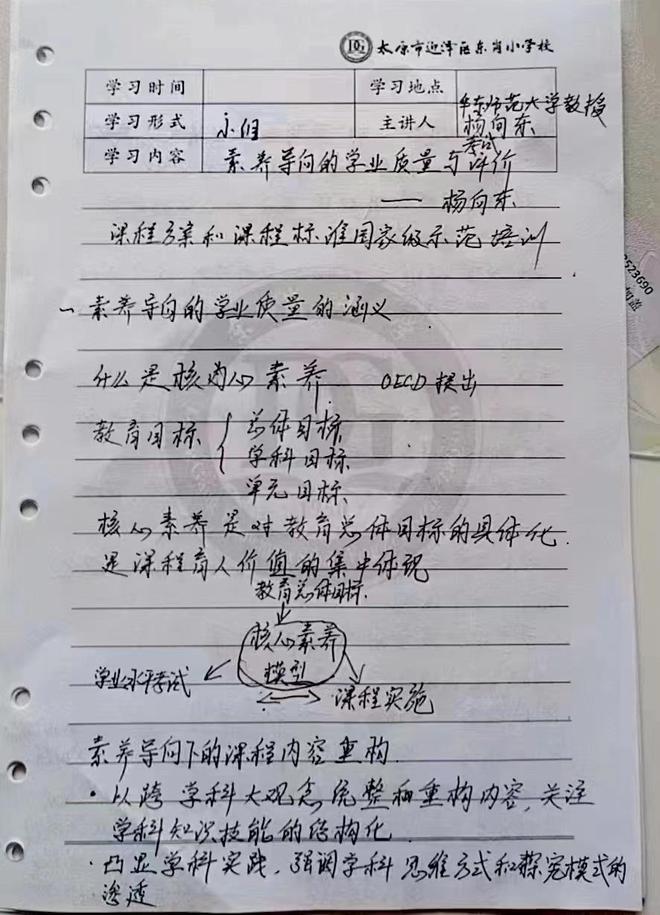 太原市迎泽区东岗小学校
学习时间 学习地点
华东师范大学教授
学习形式 主讲人 杨向东
考试
学习内容 素养导向的学业质量与评价
—— 杨向东
课程方案和课程标准国家级示范培训
一 素养导向的学业质量的涵义
什么是核心素养 OECD提出
教育目标 总体目标
学科目标
单元目标
核心素养是对教育总体目标的具体化.
是课程育人价值的集中体现
教育总体目标
核心素养
模型
学业水平考试
课程实施
素养导向下的课程内容重构.
· 以跨学科大观念统整和重构内容,关注
学科知识技能的结构化.
· 凸显学科实践,强调学科思维方式和探究模式的
渗透
523690